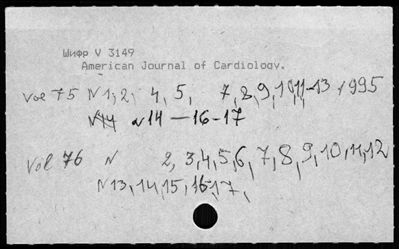 Шифр V 3149
American Journal of Cardiology.
Vol 75 N 1, 2, 4, 5, 7, 8, 9, 10, 11-13 1995
N 14 — 16-17
Vol 76 N 2, 3, 4, 5, 6, 7, 8, 9, 10, 11, 12
N 13, 14, 15, 16-17,